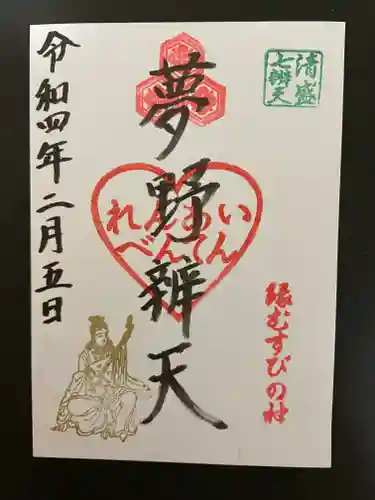 清盛
七辨天
夢野辨天
れんあい
べんてん
縁むすびの社
令和四年二月五日